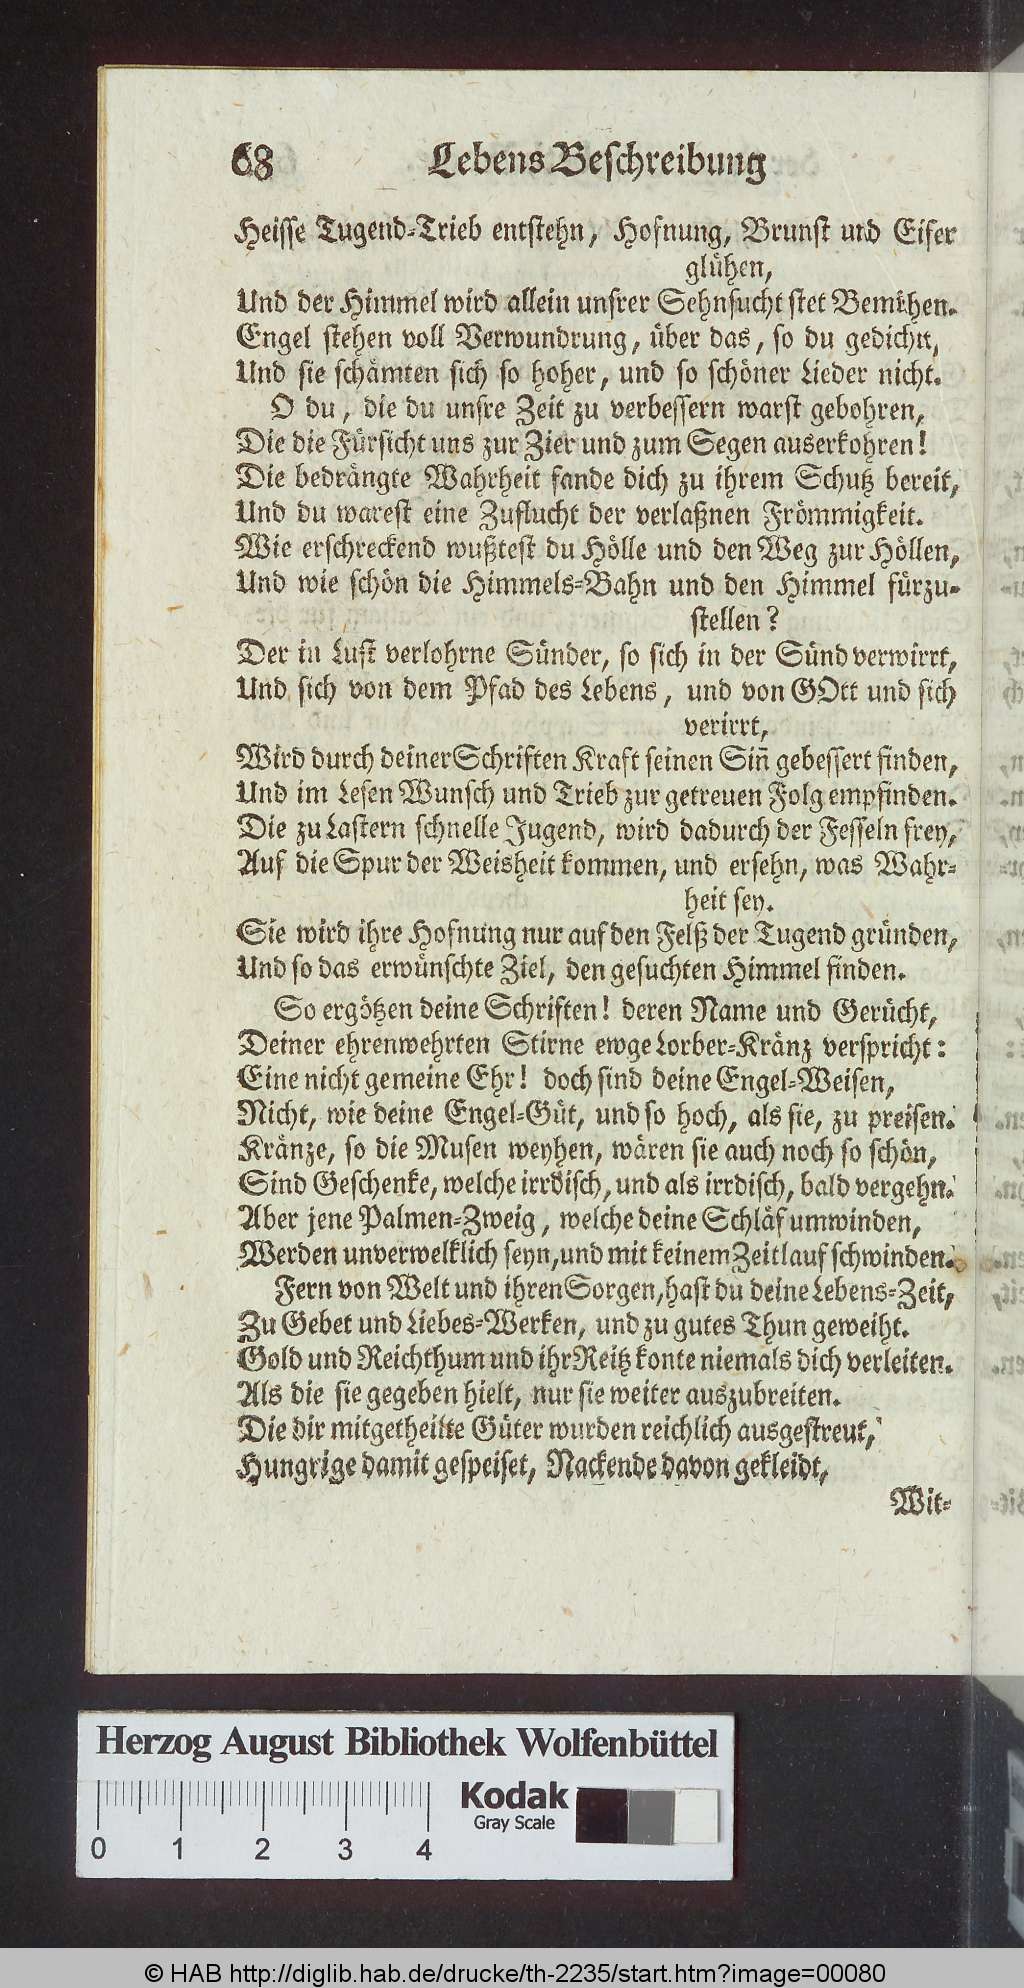 68 Lebens Beschreibung
Heisse Tugend-Trieb entstehn, Hofnung, Brunst und Eifer
glühen,
Und der Himmel wird allein unsrer Sehnsucht stet Bemühen.
Engel stehen voll Verwundrung, über das, so du gedicht,
Und sie schämten sich so hoher, und so schöner Lieder nicht.
O du, die du unsre Zeit zu verbessern warst gebohren,
Die die Fürsicht uns zur Zier und zum Segen auserkohren!
Die bedrängte Wahrheit fande dich zu ihrem Schutz bereit,
Und du warest eine Zuflucht der verlaßnen Frömmigkeit.
Wie erschreckend wußtest du Hölle und den Weg zur Höllen,
Und wie schön die Himmels-Bahn und den Himmel fürzu-
stellen?
Der in Lust verlohrne Sünder, so sich in der Sünd verwirrt,
Und sich von dem Pfad des Lebens, und von GOtt und sich
verirrt,
Wird durch deiner Schriften Kraft seinen Siñ gebessert finden,
Und im Lesen Wunsch und Trieb zur getreuen Folg empfinden.
Die zu Lastern schnelle Jugend, wird dadurch der Fesseln frey,
Auf die Spur der Weisheit kommen, und ersehn, was Wahr-
heit sey.
Sie wird ihre Hofnung nur auf den Felß der Tugend gründen,
Und so das erwünschte Ziel, den gesuchten Himmel finden.
So ergötzen deine Schriften! deren Name und Gerücht,
Deiner ehrenwehrten Stirne ewge Lorber-Kränz verspricht:
Eine nicht gemeine Ehr! doch sind deine Engel-Weisen,
Nicht, wie deine Engel-Güt, und so hoch, als sie, zu preisen.
Kränze, so die Musen weyhen, wären sie auch noch so schön,
Sind Geschenke, welche irrdisch, und als irrdisch, bald vergehn.
Aber jene Palmen-Zweig, welche deine Schläf umwinden,
Werden unverwelklich seyn, und mit keinem Zeitlauf schwinden.
Fern von Welt und ihren Sorgen, hast du deine Lebens-Zeit,
Zu Gebet und Liebes-Werken, und zu gutes Thun geweiht.
Gold und Reichthum und ihr Reitz konte niemals dich verleiten.
Als die sie gegeben hielt, nur sie weiter auszubreiten.
Die dir mitgetheilte Güter wurden reichlich ausgestreut,
Hungrige damit gespeiset, Nackende davon gekleidt,
Wit-
Herzog August Bibliothek Wolfenbüttel
Kodak
Gray Scale
0 1 2 3 4
© HAB http://diglib.hab.de/drucke/th-2235/start.htm?image=00080